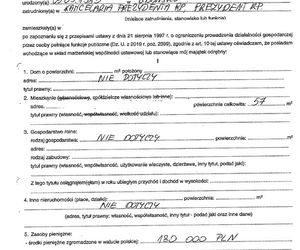 urodzony(a)
KANCELARIA PREZYDENTA RP, PREZYDENT RP
(miejsce zatrudnienia, stanowisko lub funkcja)
zamieszkały(a) w
po zapoznaniu się z przepisami ustawy z dnia 21 sierpnia 1997 r. o ograniczeniu prowadzenia działalności gospodarczej
przez osoby pełniące funkcje publiczne (Dz. U. z 2019 r. poz. 2399), zgodnie z art. 10 tej ustawy oświadczam, że posiadam
wchodzące w skład małżeńskiej wspólności ustawowej lub stanowiące mój majątek odrębny:
I
1. Dom o powierzchni: m² położony
adres: NIE DOTYCZY
tytuł prawny:
2. Mieszkanie (własnościowe, spółdzielcze własnościowe lub inne):
adres: powierzchnia całkowita: 57 m²
tytuł prawny (własność, współwłasność, wielkość udziału):
3. Gospodarstwo rolne:
rodzaj gospodarstwa: NIE DOTYCZY powierzchnia: m²
adres:
rodzaj zabudowy:
tytuł prawny (własność, współwłasność, użytkowanie wieczyste, dzierżawa, inny tytuł, podać jaki):
Z tego tytułu osiągnąłem(ęłam) w roku ubiegłym przychód i dochód w wysokości:
4. Inne nieruchomości (place, działki): powierzchnia: m²
NIE DOTYCZY
(adres, tytuł prawny: własność, współwłasność, inny tytuł - podać jaki oraz inne dane)
5. Zasoby pieniężne:
- środki pieniężne zgromadzone w walucie polskiej: 180 000 PLN